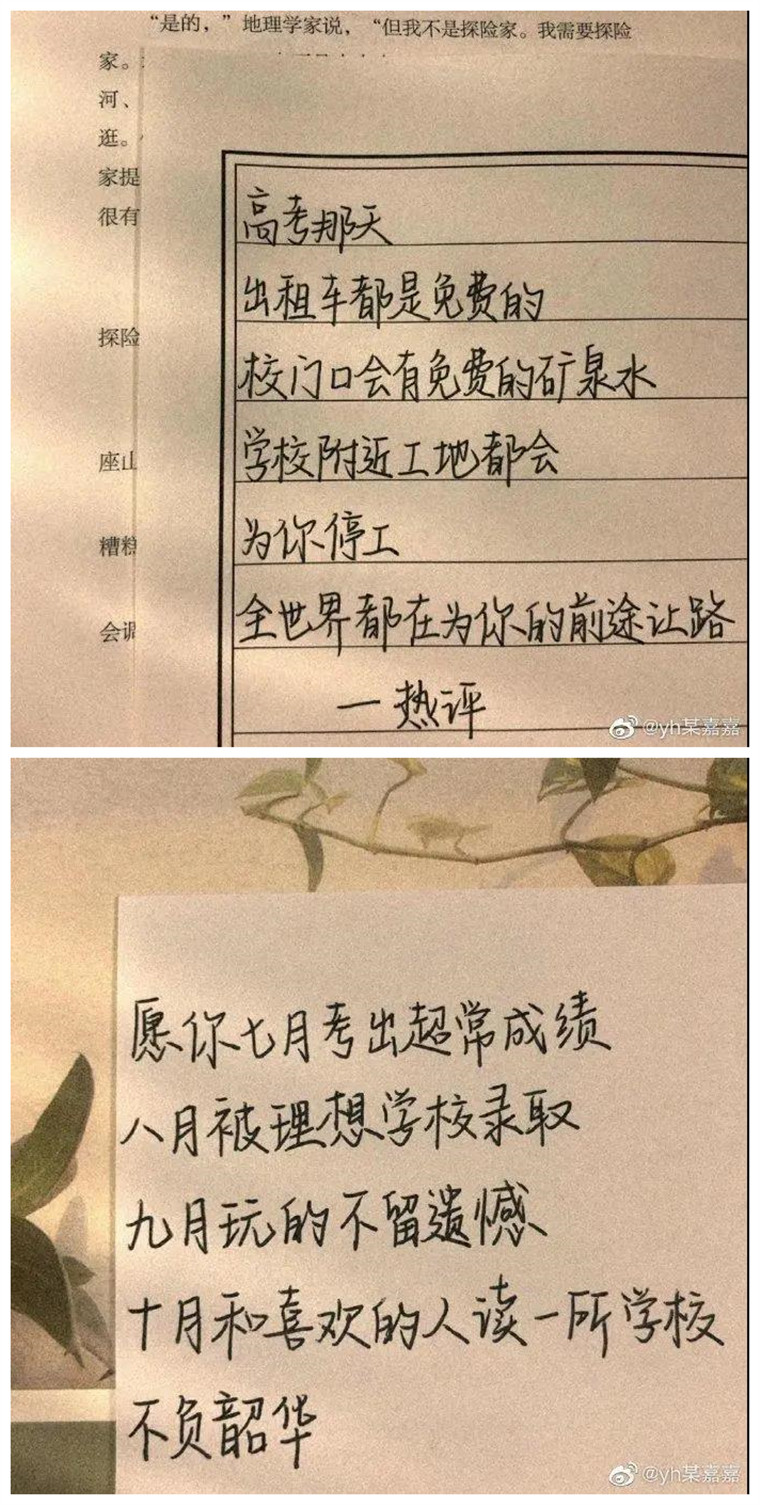 “是的，”地理学家说，“但我不是探险家。我需要探险
家。
河、
逛。
家提
很有
探险
座山
糟糕
会调
高考那天
出租车都是免费的
校门口会有免费的矿泉水
学校附近工地都会
为你停工
全世界都在为你的前途让路
一热评
@yh某嘉嘉
愿你七月考出超常成绩
八月被理想学校录取
九月玩的不留遗憾
十月和喜欢的人读一所学校
不负韶华
@yh某嘉嘉